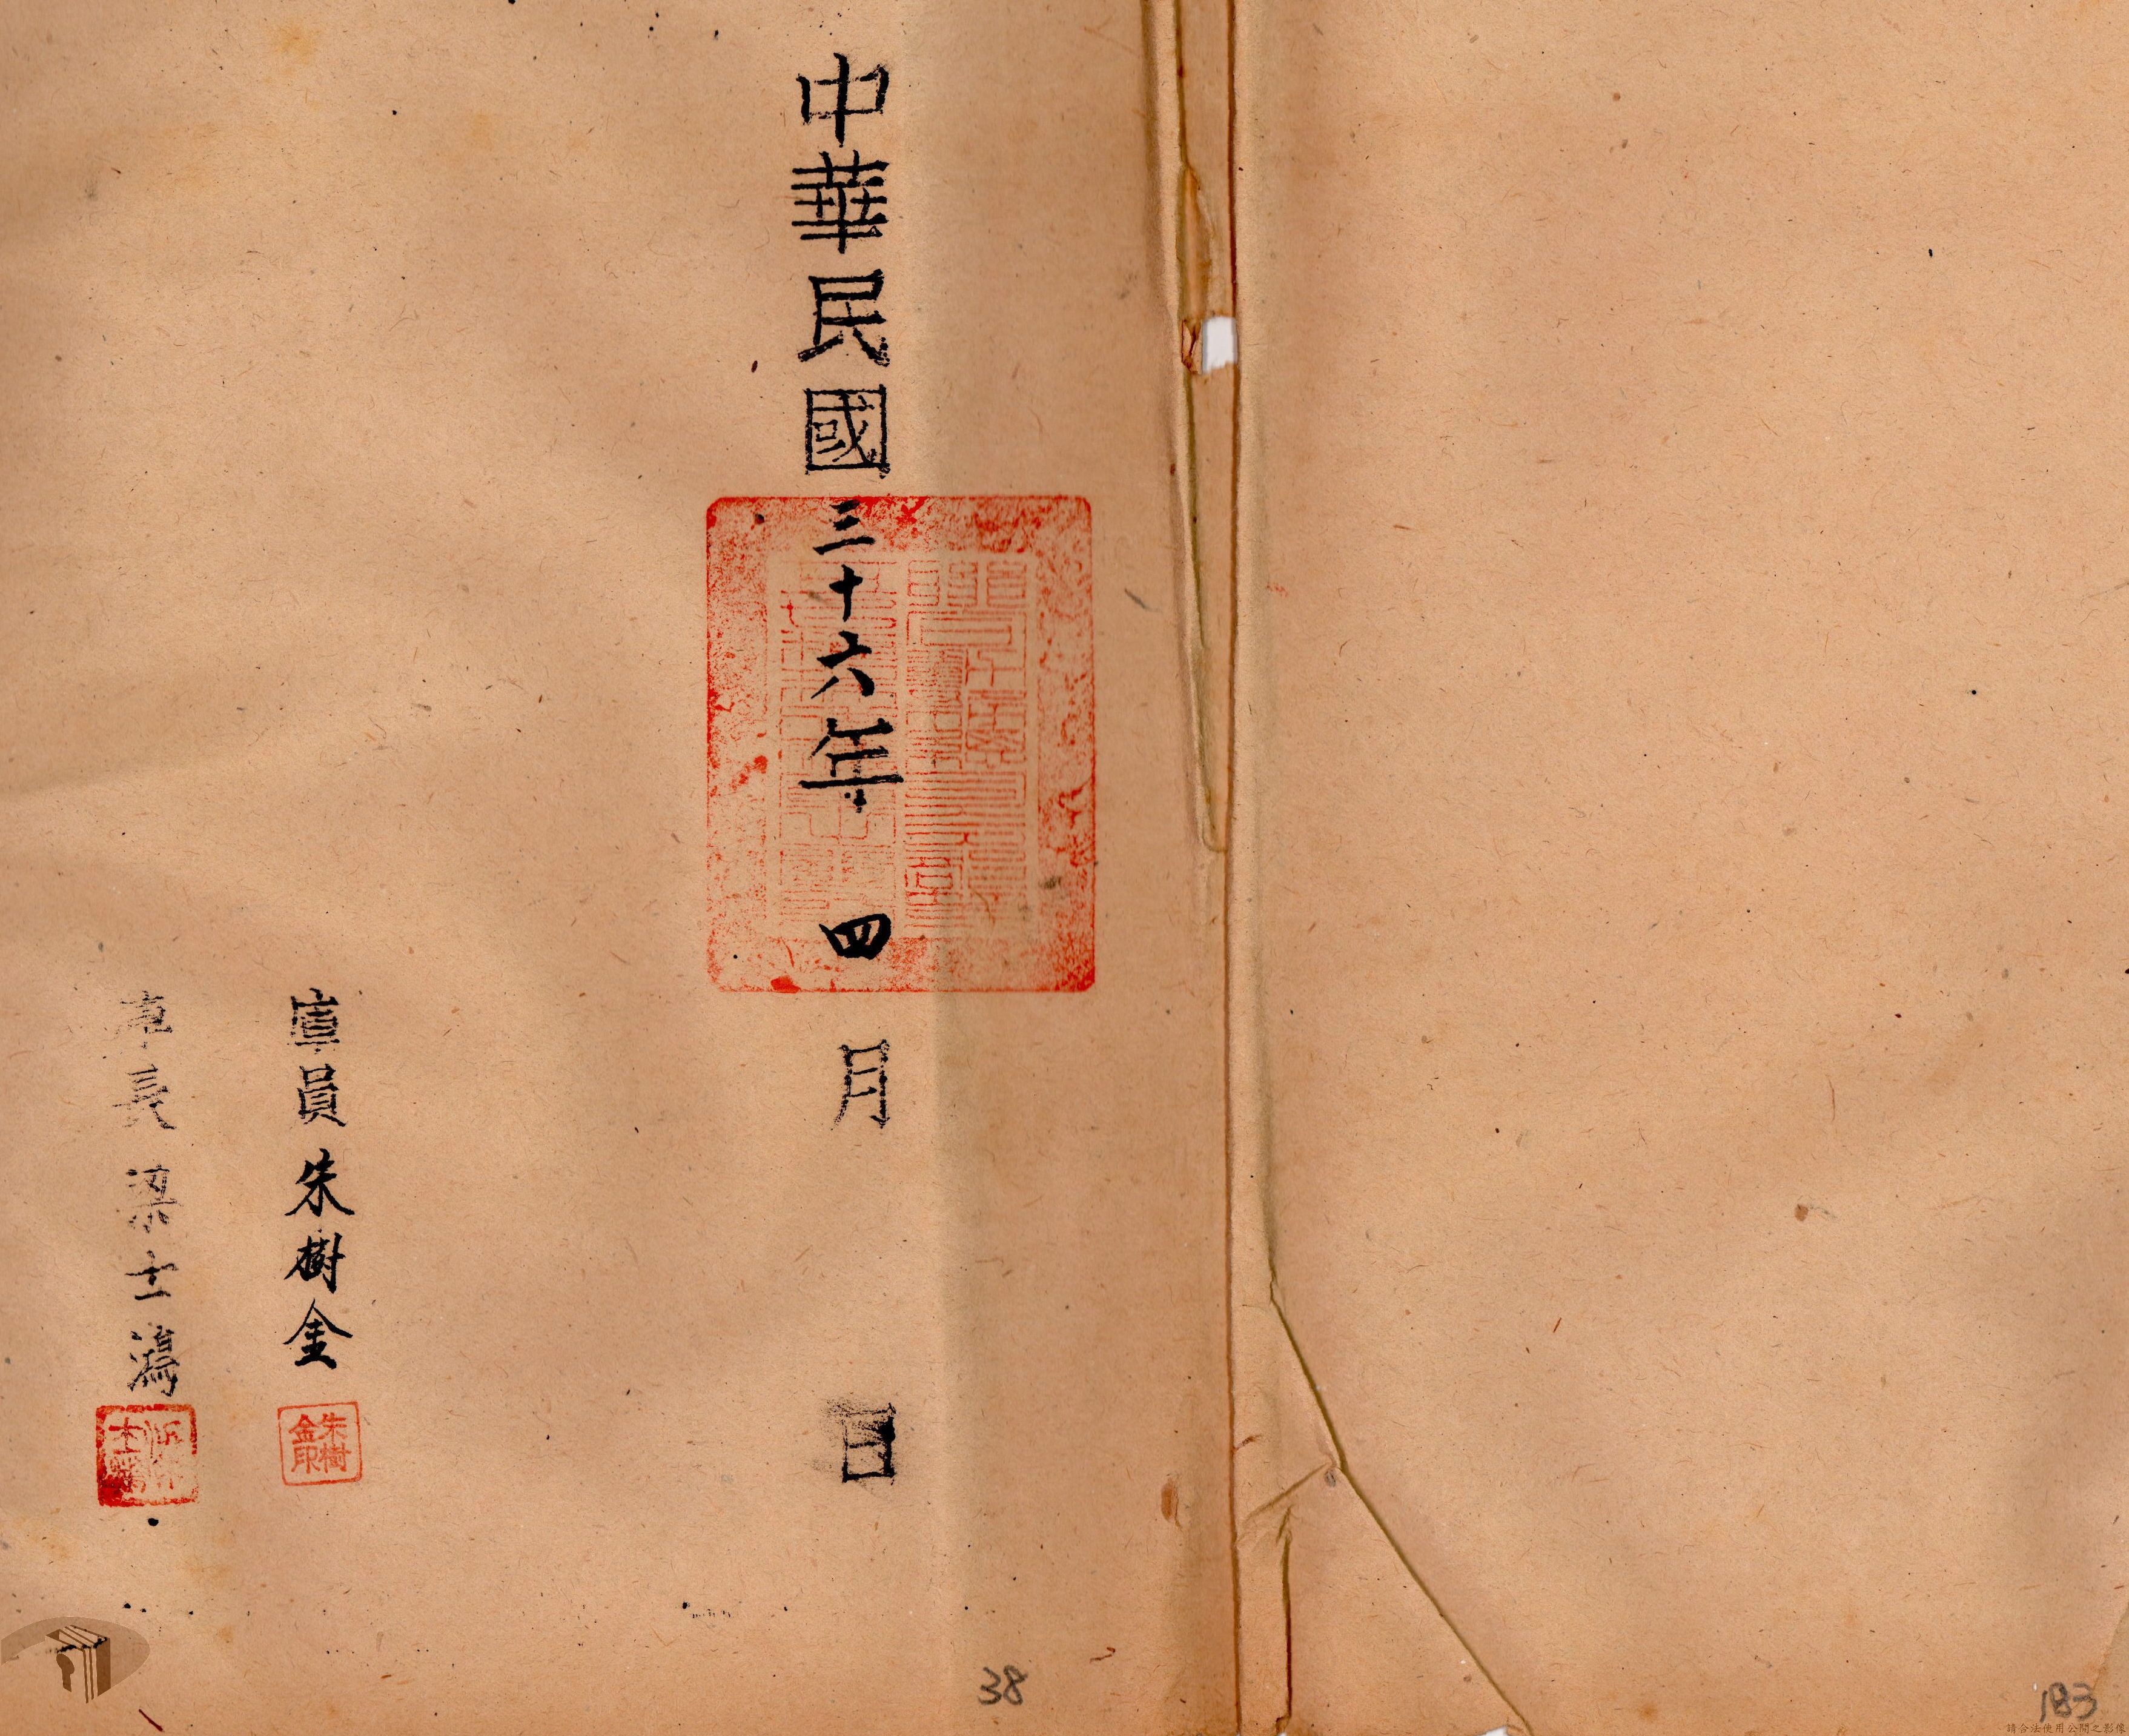 中華民國三十六年四月 日
員朱樹金
朱樹金印
長梁士鴻
38
183
請合法使用公開之影像